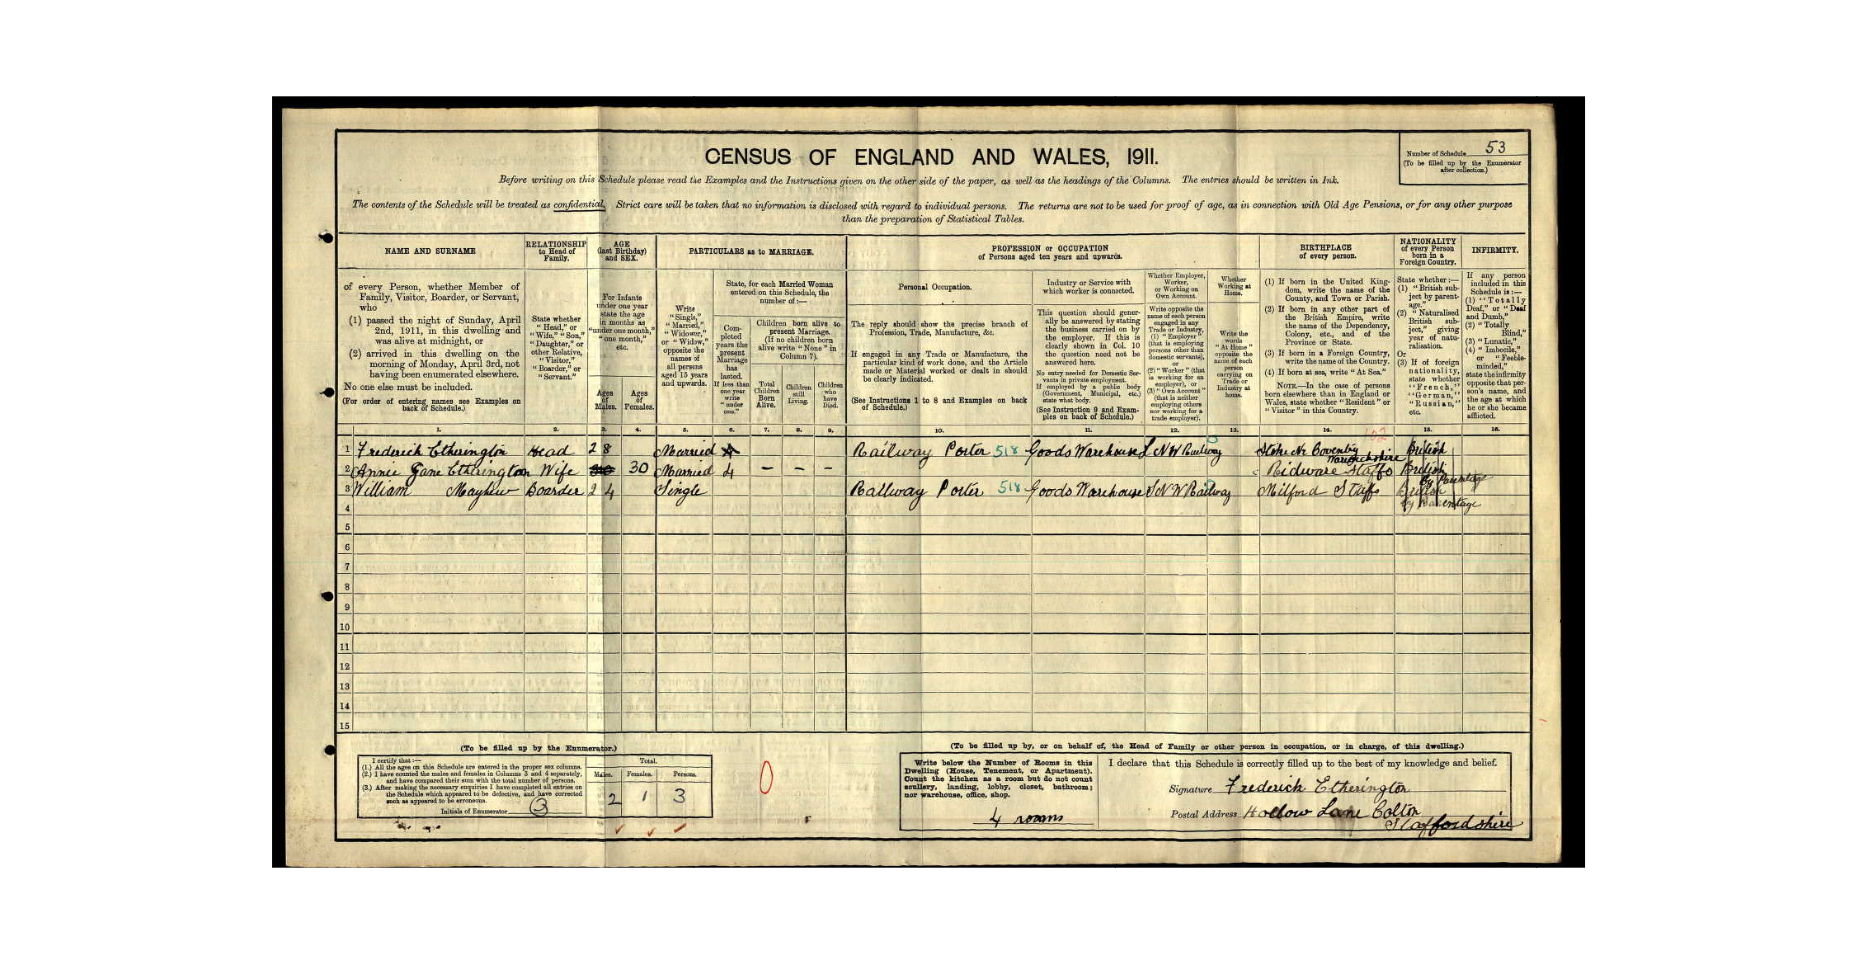 CENSUS OF ENGLAND AND WALES, 1911.
Number of Schedule 53
(To be filled up by the Enumerator
after collection.)
Before writing on this Schedule please read the Examples and the Instructions given on the other side of the paper, as well as the headings of the Columns. The entries should be written in Ink.
The contents of the Schedule will be treated as confidential. Strict care will be taken that no information is disclosed with regard to individual persons. The returns are not to be used for proof of age, as in connection with Old Age Pensions, or for any other purpose
than the preparation of Statistical Tables.
NAME AND SURNAME
of every Person, whether Member of
Family, Visitor, Boarder, or Servant,
who
(1) passed the night of Sunday, April
2nd, 1911, in this dwelling and
was alive at midnight, or
(2) arrived in this dwelling on the
morning of Monday, April 3rd, not
having been enumerated elsewhere.
No one else must be included.
(For order of entering names see Examples on
back of Schedule.)
RELATIONSHIP
to Head of
Family.
State whether
"Head," or
"Wife," "Son,"
"Daughter," or
other Relative,
"Visitor,"
"Boarder," or
"Servant."
AGE
(last Birthday)
and SEX.
For Infants
under one year
state the age
in months as
"under one month,"
"one month,"
etc.
Ages
of
Males.
Ages
of
Females.
PARTICULARS as to MARRIAGE.
Write
"Single,"
"Married,"
"Widower,"
or "Widow,"
opposite the
names of
all persons
aged 15 years
and upwards.
State, for each Married Woman
entered on this Schedule, the
number of:—
Completed
years the
present
Marriage
has
lasted.
If less than
one year
write
"under
one."
Children born alive to
present Marriage.
(If no children born
alive write "None" in
Column 7).
Total
Children
Born
Alive.
Children
still
Living.
Children
who
have
Died.
PROFESSION or OCCUPATION
of Persons aged ten years and upwards.
Personal Occupation.
The reply should show the precise branch of
Profession, Trade, Manufacture, &c.
If engaged in any Trade or Manufacture, the
particular kind of work done, and the Article
made or Material worked or dealt in should
be clearly indicated.
(See Instructions 1 to 8 and Examples on back
of Schedule.)
Industry or Service with
which worker is connected.
This question should gener-
ally be answered by stating
the business carried on by
the employer. If this is
clearly shown in Col. 10
the question need not be
answered here.
No entry needed for Domestic Ser-
vants in private employment.
If employed by a public body
(Government, Municipal, etc.)
state what body.
(See Instruction 9 and Exam-
ples on back of Schedule.)
Whether Employer,
Worker,
or Working on
Own Account.
Write opposite the
name of each person
engaged in any
Trade or Industry,
(1) "Employer"
(that is employing
persons other than
domestic servants),
or
(2) "Worker" (that
is working for an
employer), or
(3) "Own Account"
(that is neither
employing others
nor working for a
trade employer).
Whether
Working at
Home.
Write the
words
"At Home"
opposite the
name of each
person
carrying on
Trade or
Industry at
home.
BIRTHPLACE
of every person.
(1) If born in the United King-
dom, write the name of the
County, and Town or Parish.
(2) If born in any other part of
the British Empire, write
the name of the Dependency,
Colony, etc., and of the
Province or State.
(3) If born in a Foreign Country,
write the name of the Country.
(4) If born at sea, write "At Sea."
NOTE.—In the case of persons
born elsewhere than in England or
Wales, state whether "Resident" or
"Visitor" in this Country.
NATIONALITY
of every Person
born in a
Foreign Country.
State whether:—
(1) "British sub-
ject by parent-
age."
(2) "Naturalised
British sub-
ject," giving
year of natu-
ralisation.
Or
(3) If of foreign
nationality,
state whether
"French,"
"German,"
"Russian,"
etc.
INFIRMITY.
If any person
included in this
Schedule is:—
(1) "Totally
Deaf," or "Deaf
and Dumb,"
(2) "Totally
Blind,"
(3) "Lunatic,"
(4) "Imbecile,"
or "Feeble-
minded,"
state the infirmity
opposite that per-
son's name, and
the age at which
he or she became
afflicted.
1. 2. 3. 4. 5. 6. 7. 8. 9. 10. 11. 12. 13. 14. 15. 16.
1 Frederick Etherington Head 28 Married Railway Porter 518 Goods Warehouse L N W Railway Stoke Nr Coventry Warwickshire British
2 Annie Jane Etherington Wife 30 Married 4 – – – Ridware Staffs British By Parentage
3 William Mayhew Boarder 24 Single Railway Porter 518 Goods Warehouse L N W Railway Milford Staffs British by Parentage
4
5
6
7
8
9
10
11
12
13
14
15
(To be filled up by the Enumerator.)
I certify that:—
(1.) All the ages on this Schedule are entered in the proper sex columns.
(2.) I have counted the males and females in Columns 3 and 4 separately,
and have compared their sum with the total number of persons.
(3.) After making the necessary enquiries I have completed all entries on
the Schedule which appeared to be defective, and have corrected
such as appeared to be erroneous.
Initials of Enumerator
Total.
Males. Females. Persons.
2 1 3
0
(To be filled up by, or on behalf of, the Head of Family or other person in occupation, or in charge, of this dwelling.)
Write below the Number of Rooms in this
Dwelling (House, Tenement, or Apartment).
Count the kitchen as a room but do not count
scullery, landing, lobby, closet, bathroom;
nor warehouse, office, shop.
4 rooms
I declare that this Schedule is correctly filled up to the best of my knowledge and belief.
Signature Frederick Etherington
Postal Address Hollow Lane Colton
Staffordshire